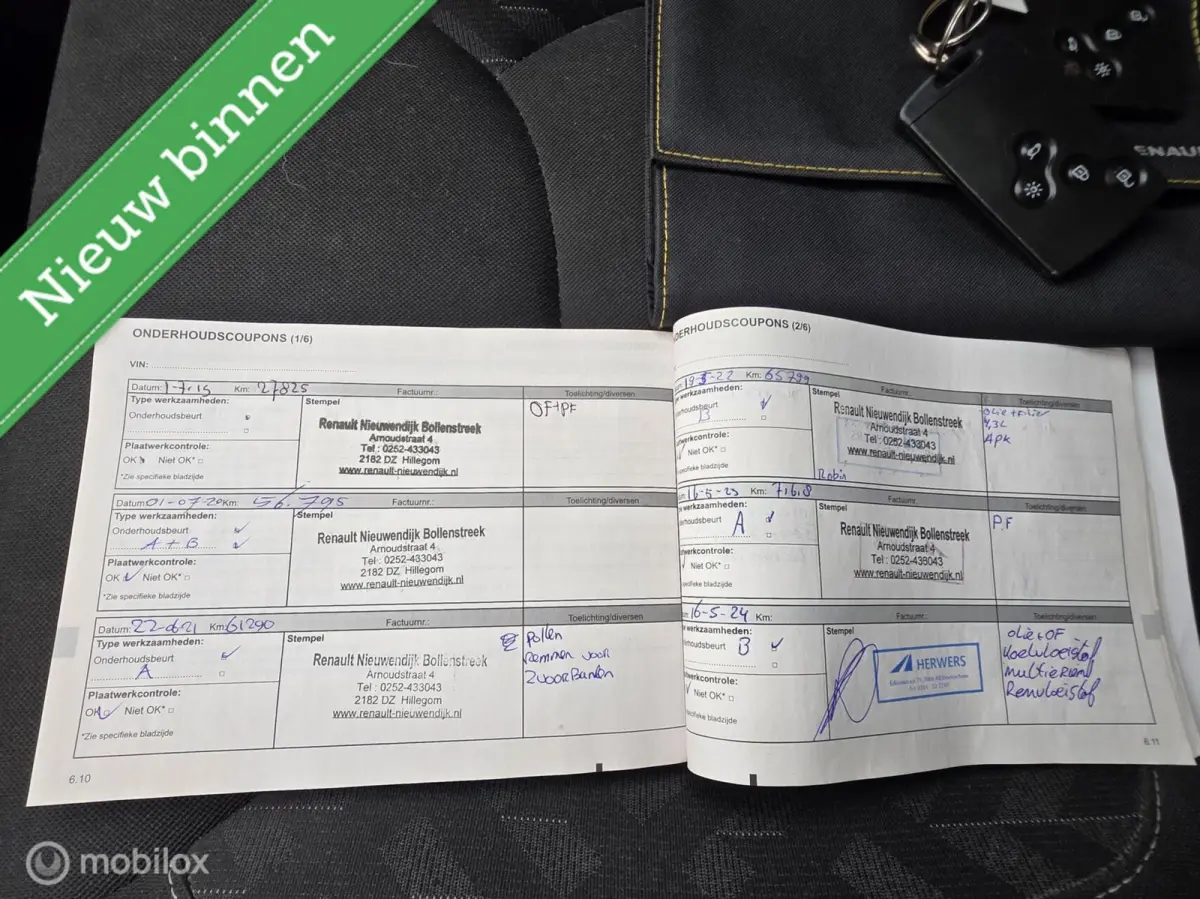 Nieuw binnen
ENAU
ONDERHOUDSCOUPONS (1/6)
VIN:
Datum: 1-7-15 Km: 27825 Factuurnr.: Toelichting/diversen
Type werkzaamheden:
Onderhoudsbeurt
Plaatwerkcontrole:
OK Niet OK*
*Zie specifieke bladzijde
Stempel
Renault Nieuwendijk Bollenstreek
Arnoudstraat 4
Tel : 0252-433043
2182 DZ Hillegom
www.renault-nieuwendijk.nl
OF+PF
Datum: 01-07-20 Km: 56.795 Factuurnr.: Toelichting/diversen
Type werkzaamheden:
Onderhoudsbeurt
A + B
Plaatwerkcontrole:
OK Niet OK*
*Zie specifieke bladzijde
Stempel
Renault Nieuwendijk Bollenstreek
Arnoudstraat 4
Tel : 0252-433043
2182 DZ Hillegom
www.renault-nieuwendijk.nl
Datum: 22-0621 Km: 61290 Factuurnr.: Toelichting/diversen
Type werkzaamheden:
Onderhoudsbeurt
A
Plaatwerkcontrole:
OK Niet OK*
*Zie specifieke bladzijde
Stempel
Renault Nieuwendijk Bollenstreek
Arnoudstraat 4
Tel : 0252-433043
2182 DZ Hillegom
www.renault-nieuwendijk.nl
Pollen
Remmen voor
2 voorBanden
6.10
DERHOUDSCOUPONS (2/6)
19-5-22 Km: 65799 Factuurnr. Toelichting/diversen
werkzaamheden:
derhoudsbeurt
B
atwerkcontrole:
Niet OK*
specifieke bladzijde
Stempel
Renault Nieuwendijk Bollenstreek
Arnoudstraat 4
Tel : 0252-433043
www.renault-nieuwendijk.nl
Robin
olie+filter
4,3L
APK
16-5-23 Km: 71618 Factuurnr. Toelichting/diversen
werkzaamheden:
erhoudsbeurt
A
aatwerkcontrole:
Niet OK*
specifieke bladzijde
Stempel
Renault Nieuwendijk Bollenstreek
Arnoudstraat 4
Tel : 0252-433043
www.renault-nieuwendijk.nl
PF
16-5-24 Km: Factuurnr.: Toelichting/diversen
werkzaamheden:
rhoudsbeurt
B
werkcontrole:
Niet OK*
specifieke bladzijde
Stempel
HERWERS
olie+OF
Koelvloeistof
Multieriem
Remvloeistof
6.11
mobilox